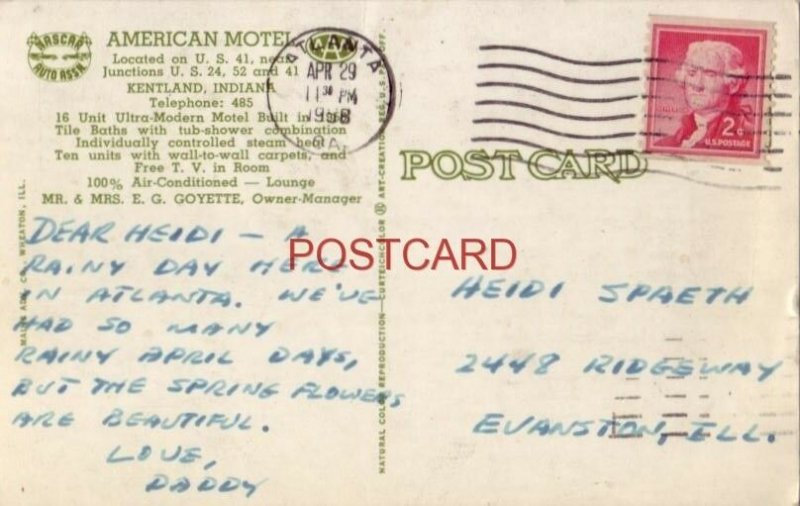 NASCAR
AUTO ASSN.
AMERICAN MOTEL
Located on U. S. 41, near
Junctions U. S. 24, 52 and 41
KENTLAND, INDIANA
Telephone: 485
16 Unit Ultra-Modern Motel Built in
Tile Baths with tub-shower combination
Individually controlled steam heat
Ten units with wall-to-wall carpets, and
Free T. V. in Room
100% Air-Conditioned — Lounge
MR. & MRS. E. G. GOYETTE, Owner-Manager
ATLANTA
APR 29
11 30 PM
1958
GA.
2¢
U.S. POSTAGE
POST CARD
POSTCARD
DEAR HEIDI — A
RAINY DAY HERE
IN ATLANTA. WE'VE
HAD SO MANY
RAINY APRIL DAYS,
BUT THE SPRING FLOWERS
ARE BEAUTIFUL.
LOVE,
DADDY
HEIDI SPAETH
2448 RIDGEWAY
EVANSTON, ILL.
ADV. CO. WHEATON, ILL.
NATURAL COLOR REPRODUCTION—CURTEICHCOLOR ® ART-CREATION REG. U.S. PAT. OFF.